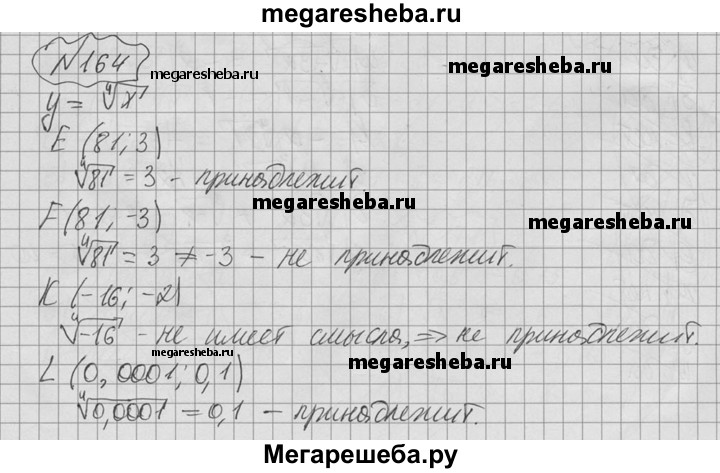 megaresheba.ru
N164
megaresheba.ru
megaresheba.ru
y = ∜x
E (81; 3)
∜81 = 3 - принадлежит
megaresheba.ru
F (81; -3)
megaresheba.ru
∜81 = 3 ≠ -3 - не принадлежит.
K (-16; -2)
∜-16 - не имеет смысла, ⇒ не принадлежит.
megaresheba.ru
megaresheba.ru
L (0,0001; 0,1)
∜0,0001 = 0,1 - принадлежит.
Мегарешеба.ру